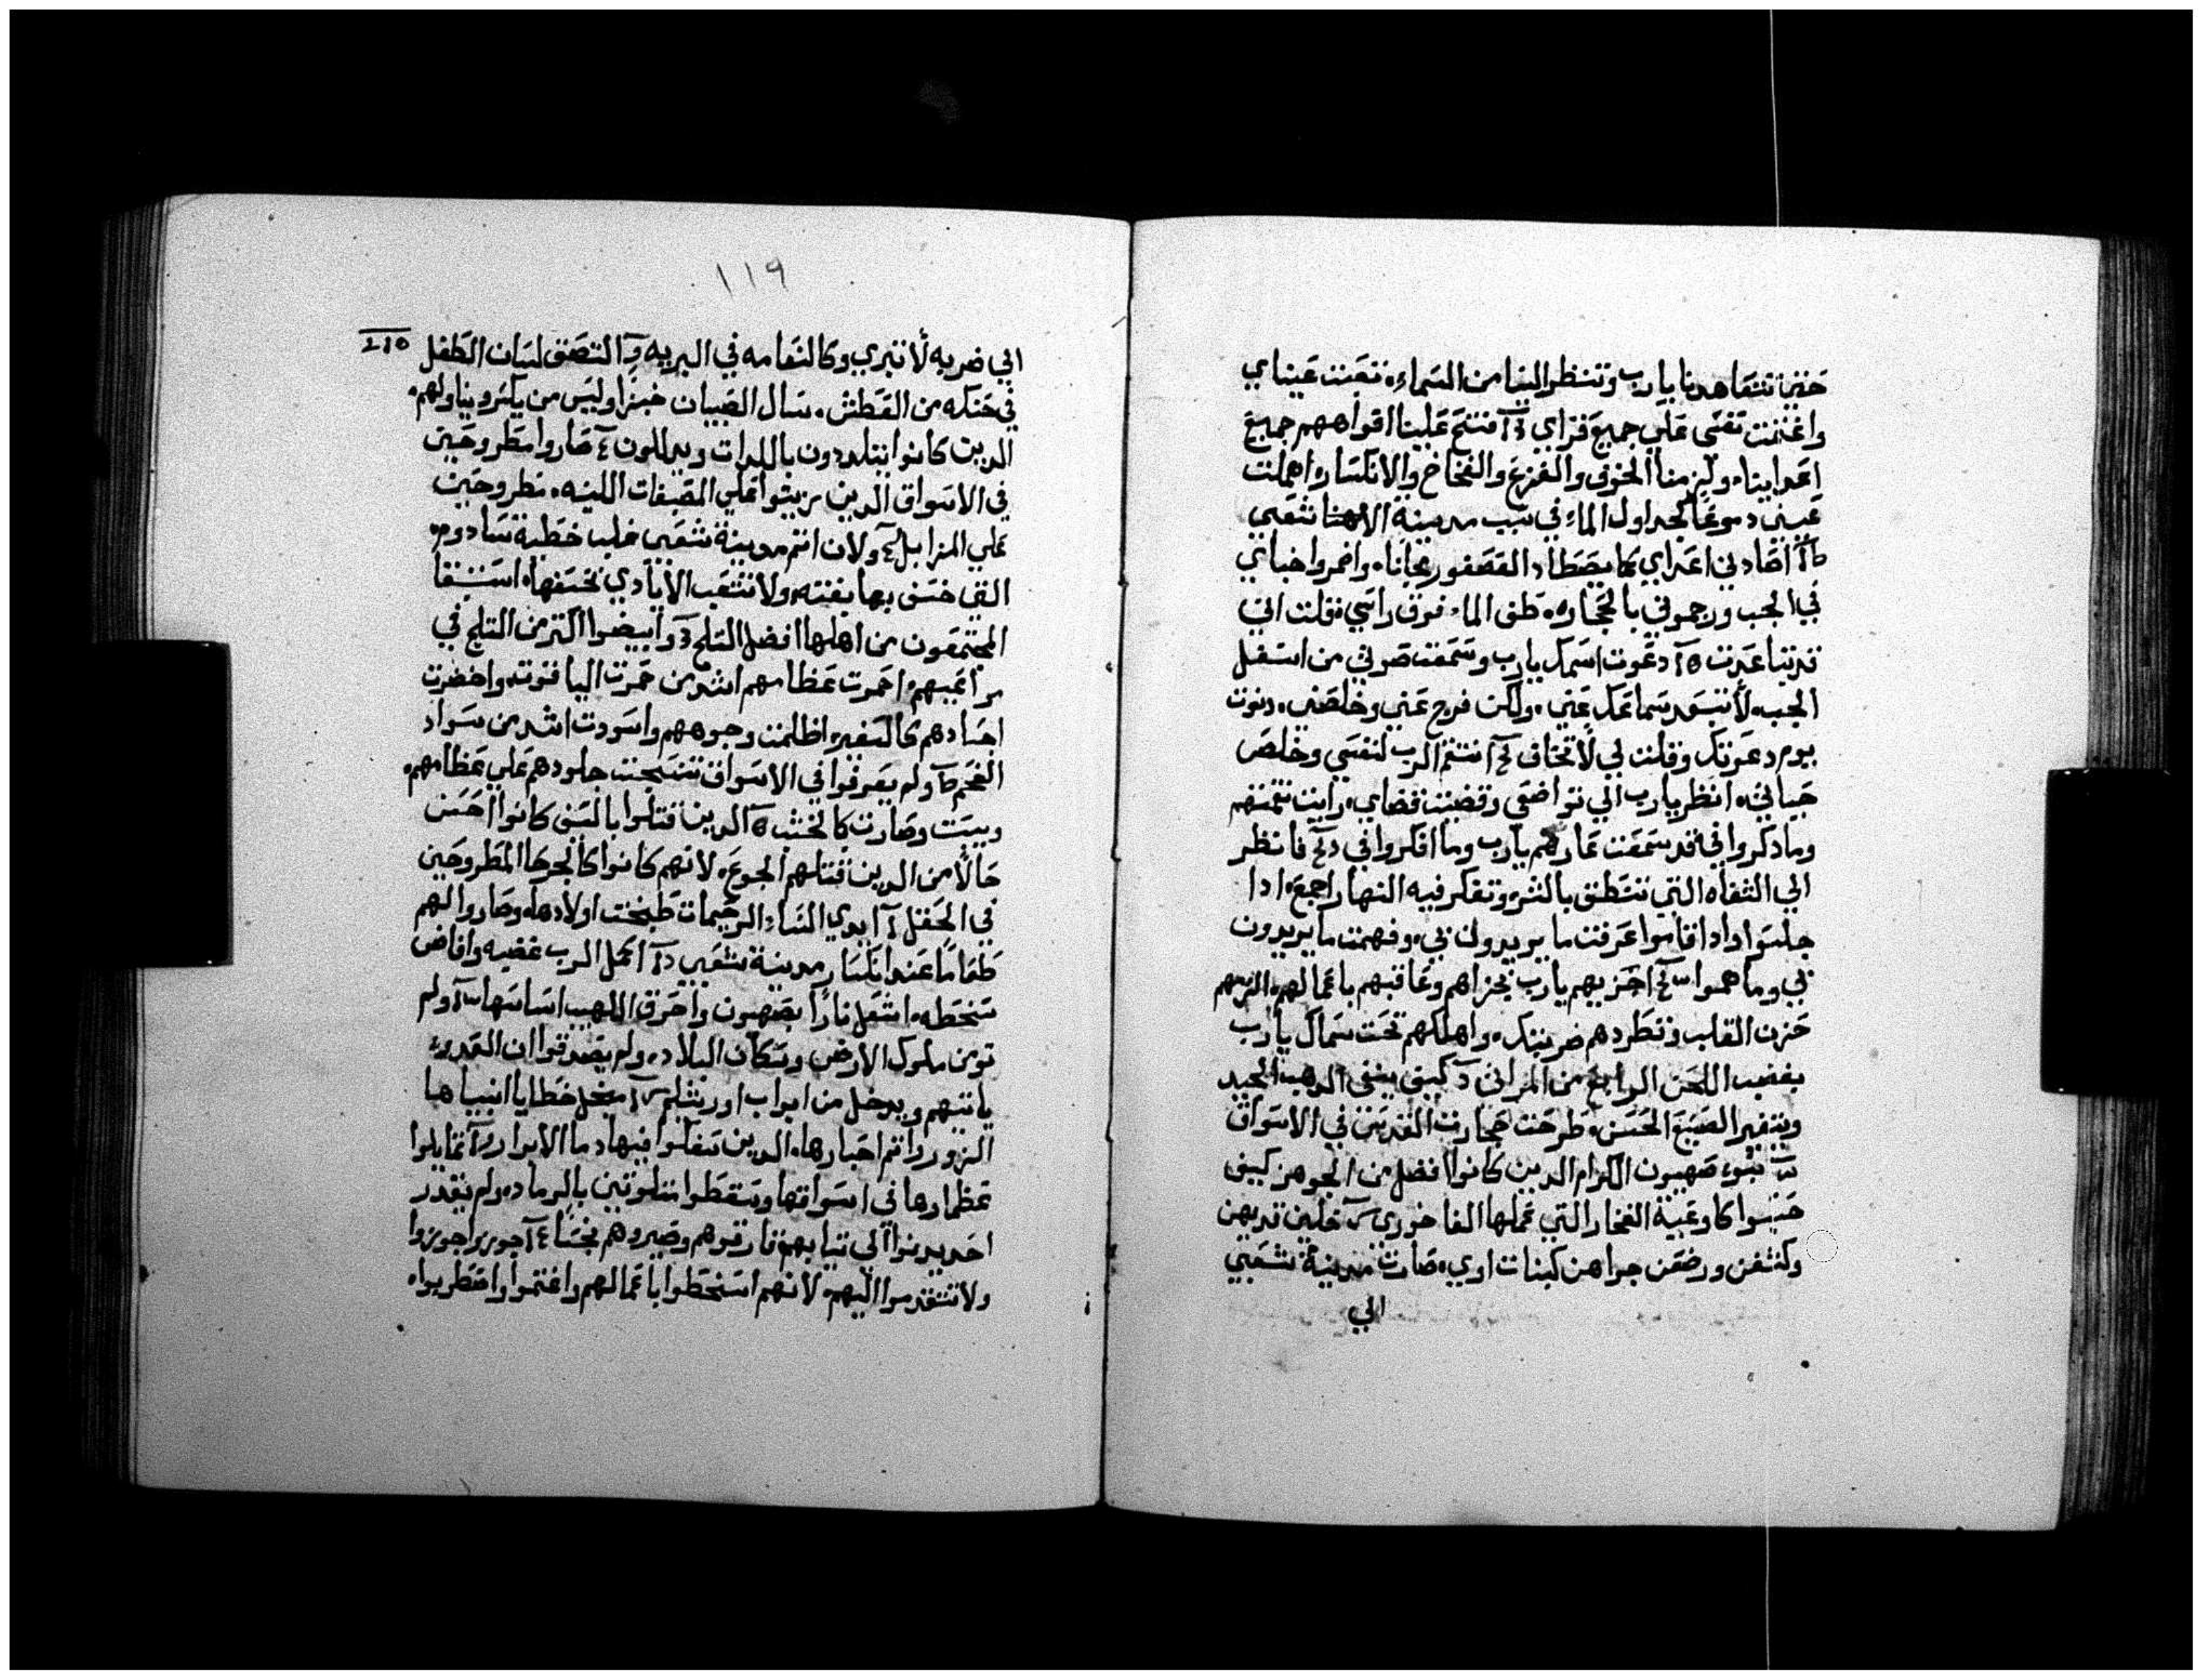 حتي تتعاهدنا يارب وتنظر الينا من السماء، تعبت عيناي
واغتمت نفسي علي جميع قراي فتح علينا افواههم جميع
اعدايناه ولزمنا الخوف والفزع والفخاخ والانكساره اهملت
عيني دموعًا كجداول الماء في سبب مدينة الاهنا شعبي
اصادني اعداي كما يصطاد العصفور مجانًاه واضمروا حياتي
في الجب ورجموني بالحجاره، طفى الماء فوق راسي، فقلت اني
قد تباعدت دعوت اسمك يارب وسمعت صوتي من اسفل
الجب، لا تبتعد سماعك عني، ولكن فرج عني وخلصني، دنوت
يوم دعوتك وقلت لي لا تخاف انتقم الرب لنفسي وخلص
حياتي، انظر يارب الي تواضعي وقضيت قضاي، رايت نقمتهم
وما ذكروا في قد سمعت عارهم يارب وما افكروا في فانظر
الي الشفاه التي تنطق بالشر وتفكر فيه النهار اجمع، ادا
جلسوا وادا قاموا عرفت ما يريدون بي، وفهمت ما يريدون
بي وما هموا اجزيهم يارب بجزاهم وعاقبهم باعمالهم، الزمهم
حزن القلب وتطردهم ضربتك، واهلكهم تحت سماك يارب
بغضب اللحن الرابع من المراثي كيف ينفي الدهب الجيد
ويتغير الصبغ الحسن، طرحت حجارت القدس في الاسواق
بنوا صهيون الكرام الدين كانوا افضل من الجوهر كيف
حسبوا كاوعية الفخار التي عملها الفاخوري خلين تديهن
وكشفن ورضعن جراهن كبنات اوي، صارت مدينة شعبي
الي
١١٩
الي ضربه لا تبري وكالنعامه في البريه التصق لسان الطفل
في حنكه من العطش، سال الصبيان خبزًا وليس من يكسر ويناولهم،
الدين كانوا يتلددون باللدات ويدللون صاروا مطروحين
في الاسواق الدين ربيوا علي المصبغات اللينه، مطروحين
علي المزابل ولان اتم مدينة شعبي غلب خطية سادوم،
التي خسف بها بغته، ولا تتعب الايادي بخسفها، استنقا
المجتمعون من اهلها افضل التلج وابيضوا اكتر من التلج في
مراعيهم، احمرت عظامهم اشد من حمرت الياقوت، واخضرت
اجسادهم كالسفير، اظلمت وجوههم واسودت اشد من سواد
الفحم ولم يعرفوا في الاسواق نشجت جلودهم علي عظامهم،
ويبست وصارت كالخشب الدين قتلوا بالسيف كانوا احسن
حالًا من الدين قتلهم الجوع، لانهم كانوا كالجرحا المطروحين
في الحقل ايدي النساء الرحيمات طبخت اولادها، وصاروا لهم
طعامًا عند انكسار مدينة شعبي اكمل الرب غضبه وافاض
سخطه، اشعل نارًا بصهيون واحرق اللهيب اساسها ولم
تومن ملوك الارض وسكان البلاد، ولم يصدقوا ان العدو،
ياتيهم ويدخل من ابواب اورشليم من اجل خطايا انبياها
الزور واتم احبارها، الدين سفكوا فيها دما الابرار تمايلوا
عظمارها في اسواقها وسقطوا متلوتين بالرماد، ولم يقدر
احد يدنوا الي تيابهم فارقوهم وصيروهم نجسًا جوزوا جوزوا
ولا تتقدموا اليهم، لانهم اسخطوا باعمالهم واغتموا واضطربوا،